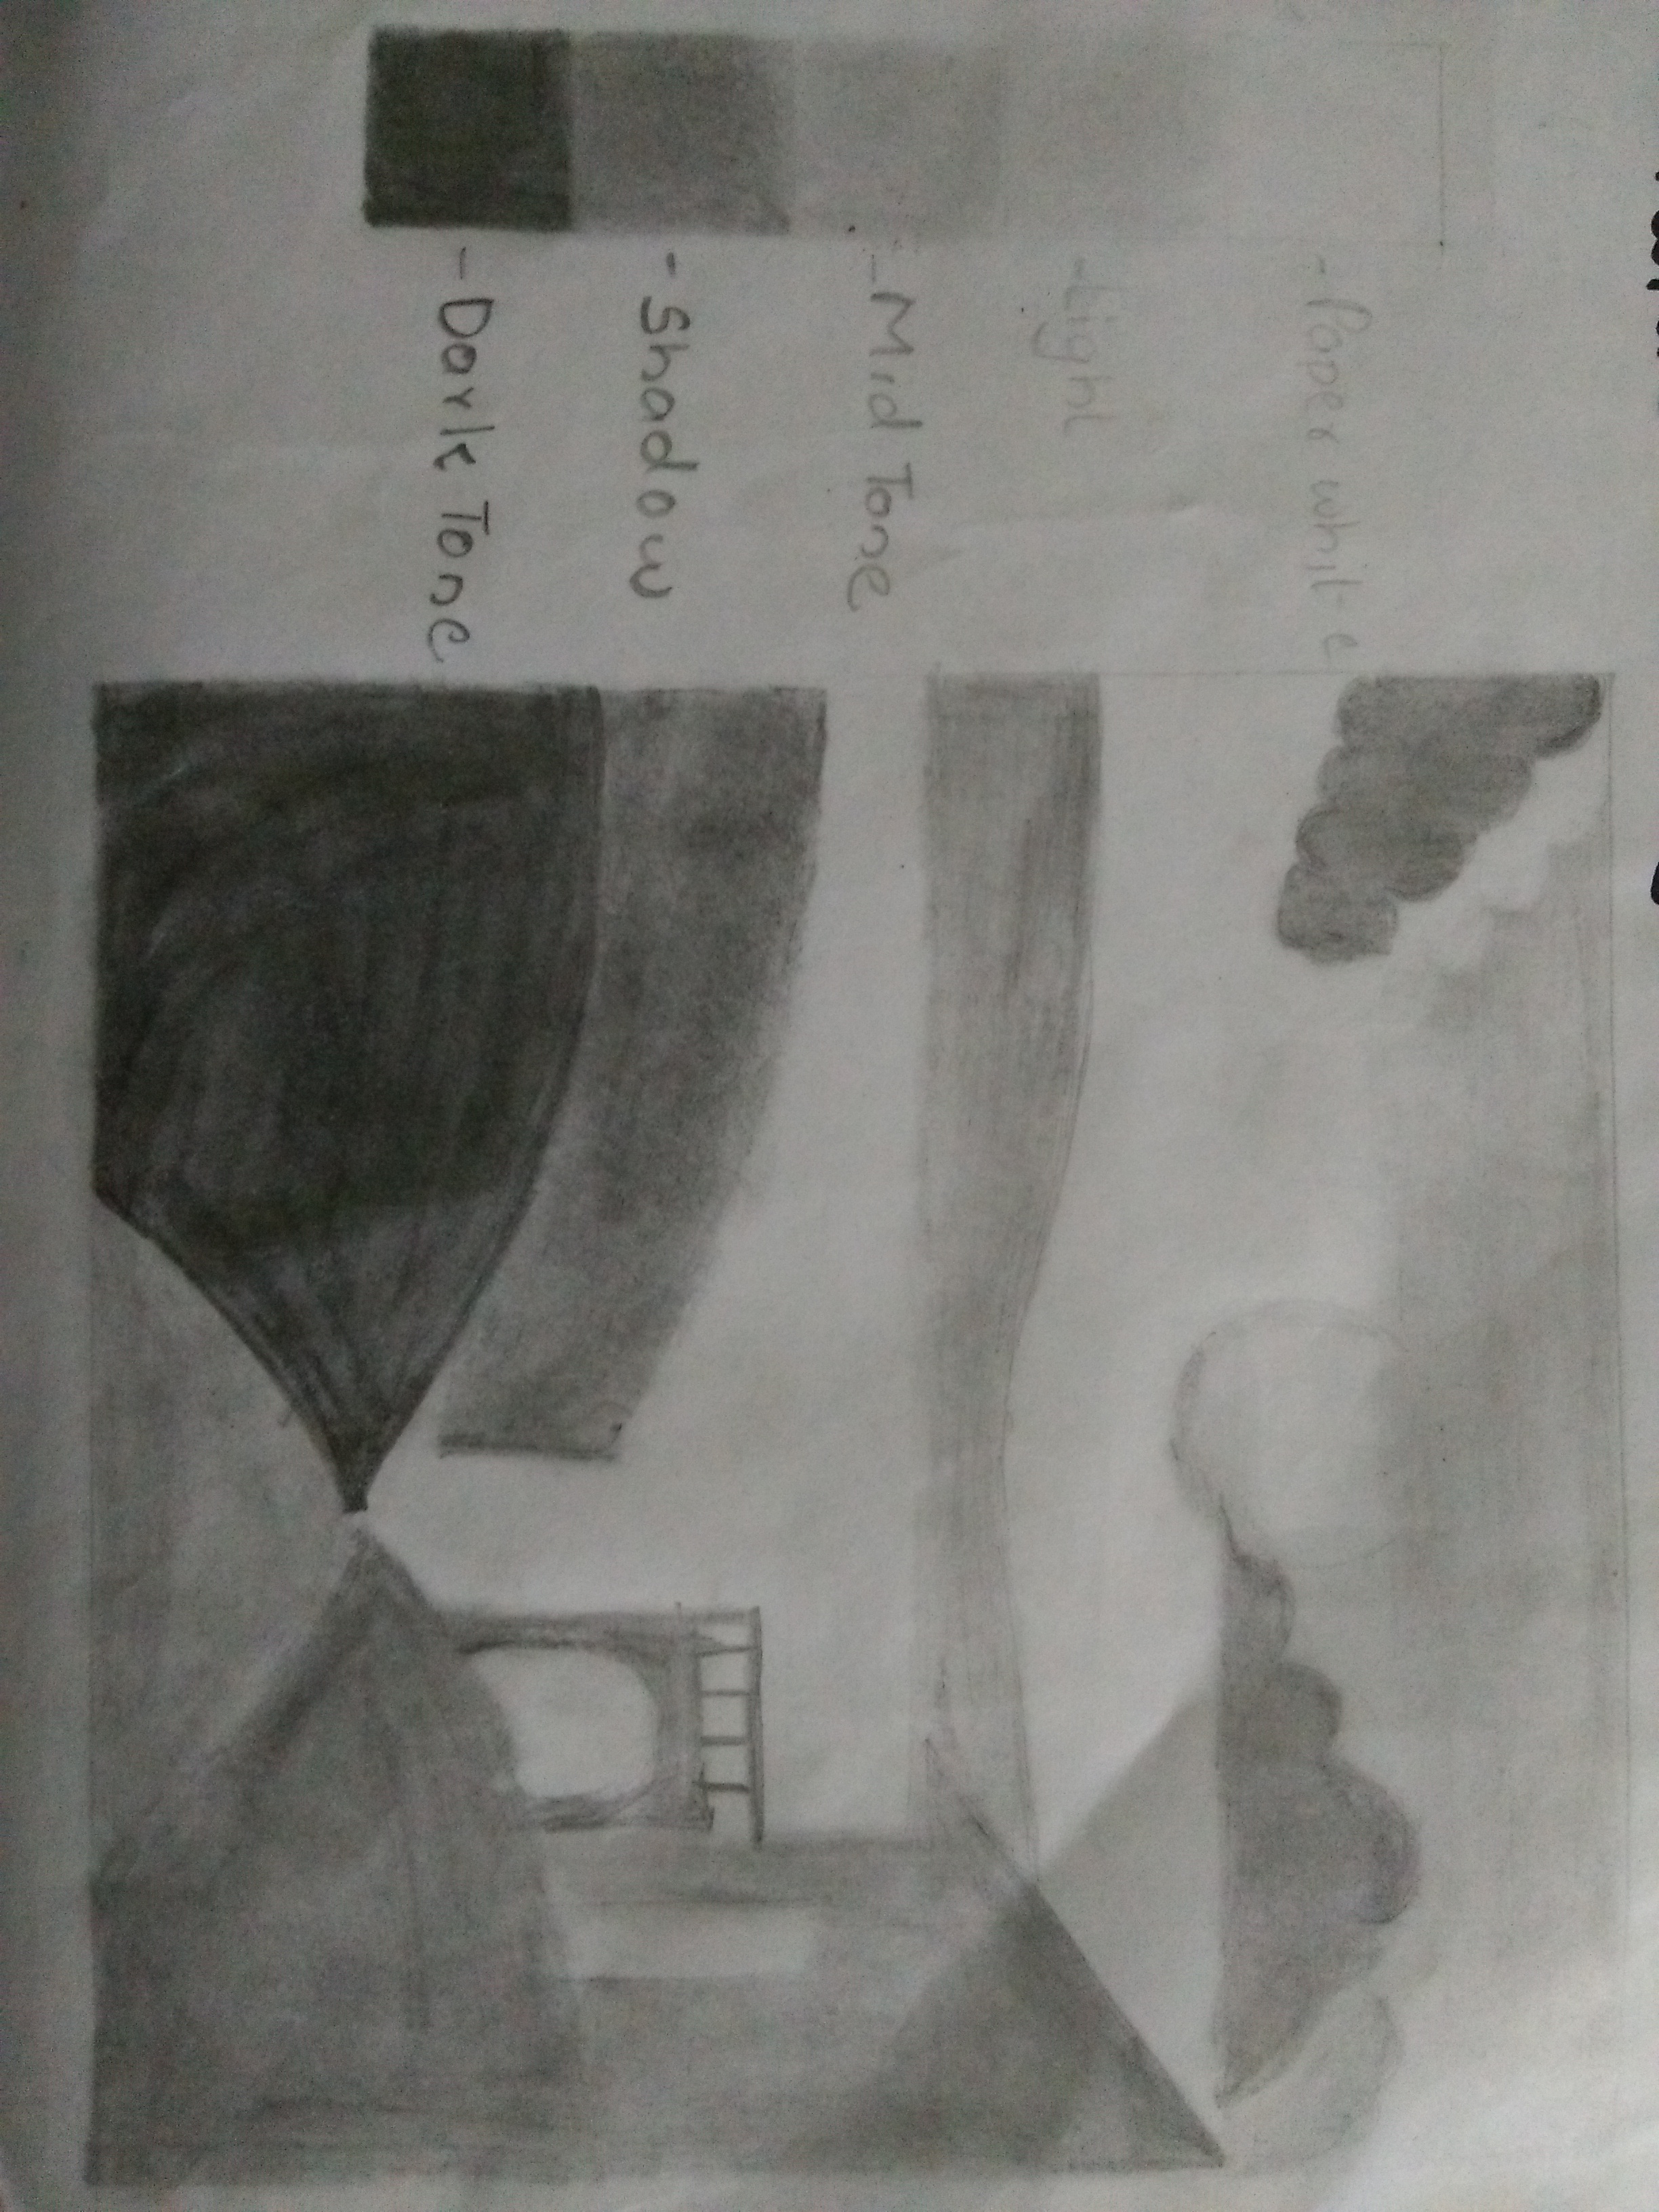 - Paper white
- Light
- Mid Tone
- Shadow
- Dark Tone